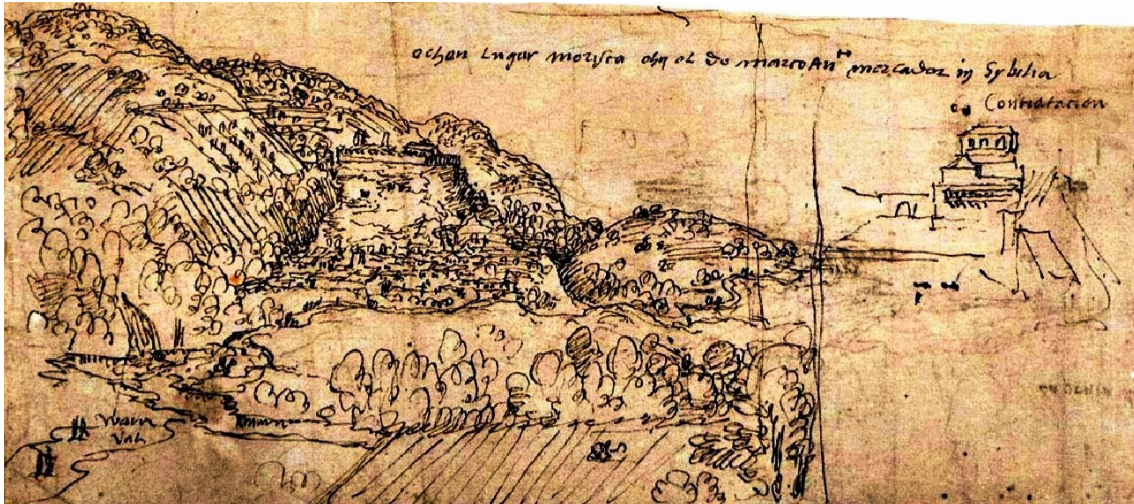 ochen Lugar morisca chq el do marco Anto mercador in Sybilia
Contratacion
Water
Val